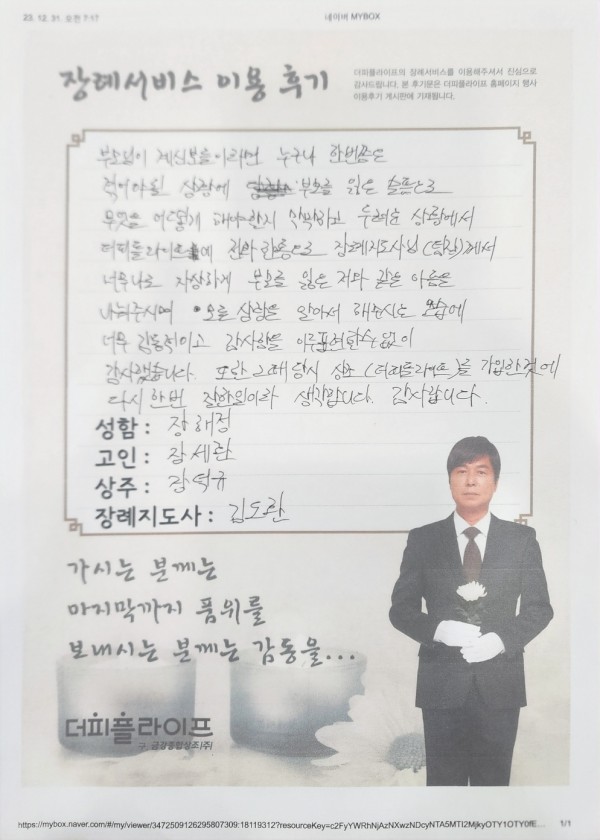 23. 12. 31. 오전 7:17
네이버 MYBOX
장례서비스 이용 후기
더피플라이프의 장례서비스를 이용해주셔서 진심으로
감사드립니다. 본 후기문은 더피플라이프 홈페이지 행사
이용후기 게시판에 기재됩니다.
부모님이 계신분들이라면 누구나 한번쯤은
겪어야될 상황에 부모를 잃은 슬픔으로
무엇을 어떻게 해야할지 막막하고 두려운 상황에서
더피플라이프에 전화 한통으로 장례지도사님(팀장)께서
너무나도 자상하게 부모를 잃은 저와 같은 아픔을
나눠주시며 모든 상황을 알아서 해주시는 모습에
너무 감동적이고 감사함을 이루표현할수없이
감사했습니다. 또한 그때당시 상조(더피플라이프)를 가입한것에
다시한번 잘한일이라 생각합니다. 감사합니다.
성함 : 장해정
고인 : 장세란
상주 : 장덕규
장례지도사 : 김도환
가시는 분께는
마지막까지 품위를
보내시는 분께는 감동을...
더피플라이프
구. 금강종합상조(주)
https://mybox.naver.com/#/my/viewer/3472509126295807309:18119312?resourceKey=c2FyYWRhNjAzNXwzNDcyNTA5MTI2MjkyOTY1OTY0fE...
1/1